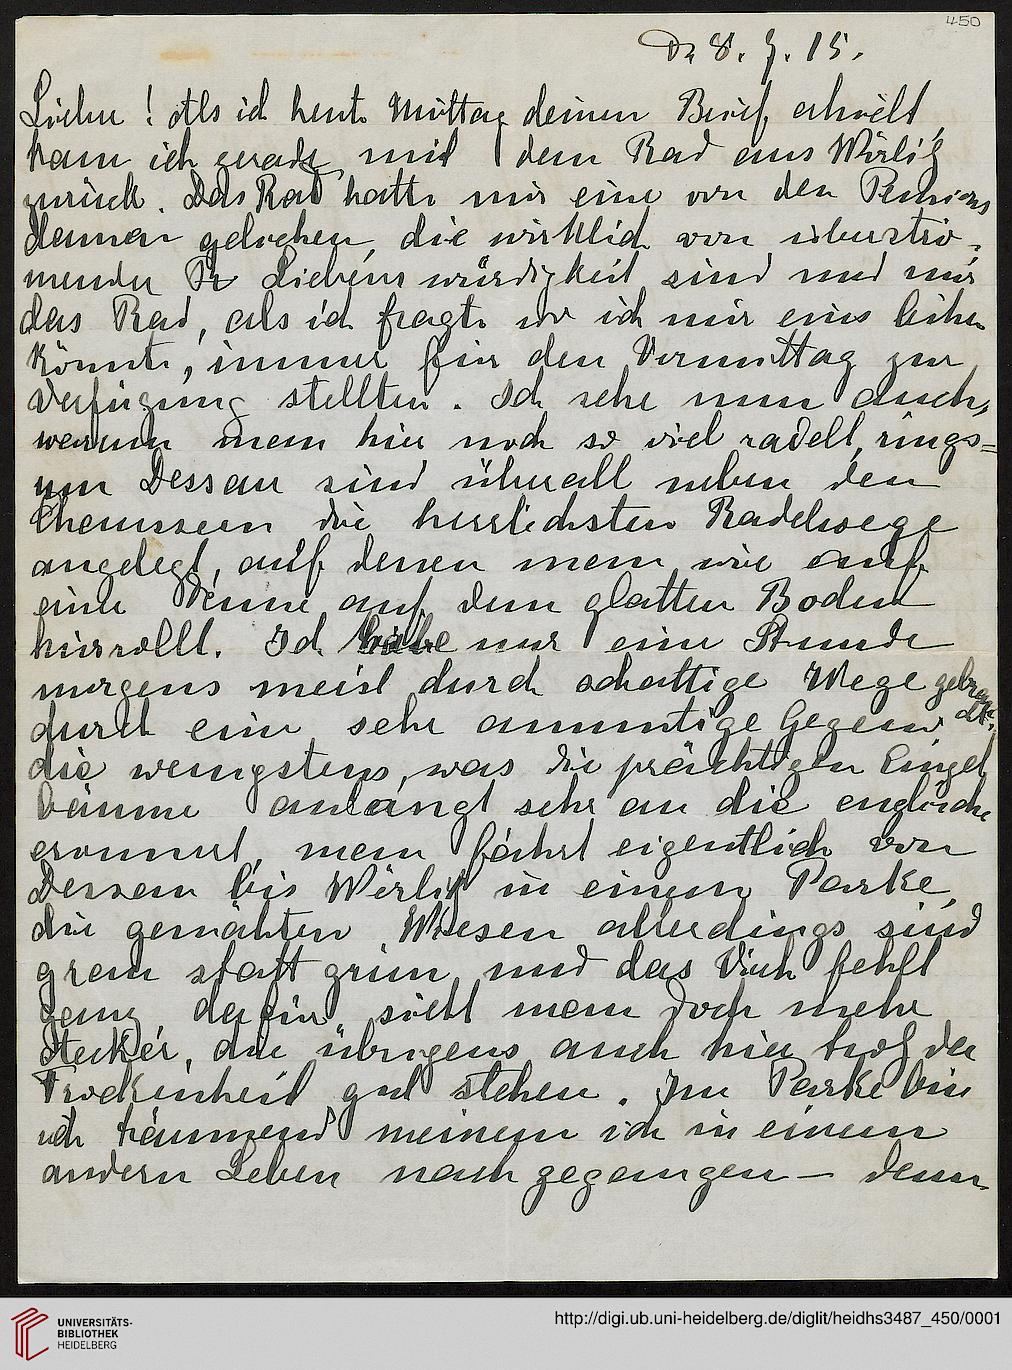 450
D. 8. 7. 15.
Liebe! Als ich heute Mittag deinen Brief erhielt,
kam ich gerade mit dem Rad aus Wörlitz
zurück. Das Rad hatte mir eine von den Pensions
damen geliehen, die wirklich von überströ-
mender Liebenswürdigkeit sind und mir
das Rad, als ich fragte wo ich mir eins leihen
könnte, immer für den Vormittag zur
Verfügung stellten. Ich sehe nun auch,
warum man hier noch so viel radelt, rings=
um Dessau sind überall neben den
Chausseen die herrlichsten Radelwege
angelegt, auf denen man wie auf
einer Tenne auf dem glatten Boden
hinrollt. Ich habe nur eine Stunde
morgens meist durch schattige Wege gebraucht,
durch eine sehr anmutige Gegend
die wenigstens, was die prächtigen Einzel
bäume anlangt sehr an die englische
erinnert, man fährt eigentlich von
Dessau bis Wörlitz in einem Parke,
die gemähten Wiesen allerdings sind
grau statt grün und das Vieh fehlt
ganz, dafür sieht man doch mehr
Aecker, die übrigens auch hier trotz der
Trockenheit gut stehen. Im Parke bin
ich träumend meinem ich in einem
andern Leben nachgegangen – denn
UNIVERSITÄTS-
BIBLIOTHEK
HEIDELBERG
http://digi.ub.uni-heidelberg.de/diglit/heidhs3487_450/0001